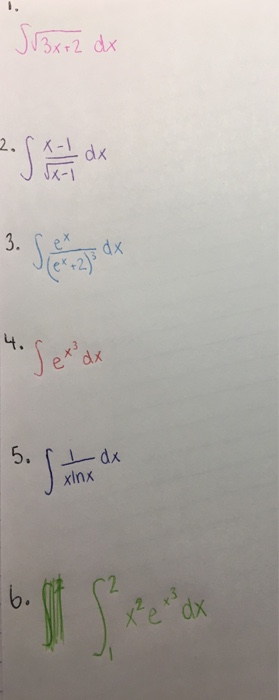 1.
∫√3x+2 dx
2. ∫ x-1/√x-1 dx
3. ∫ eˣ/(eˣ+2)³ dx
4. ∫ e^x³ dx
5. ∫ 1/xlnx dx
6. ∫₁² x²e^x³ dx